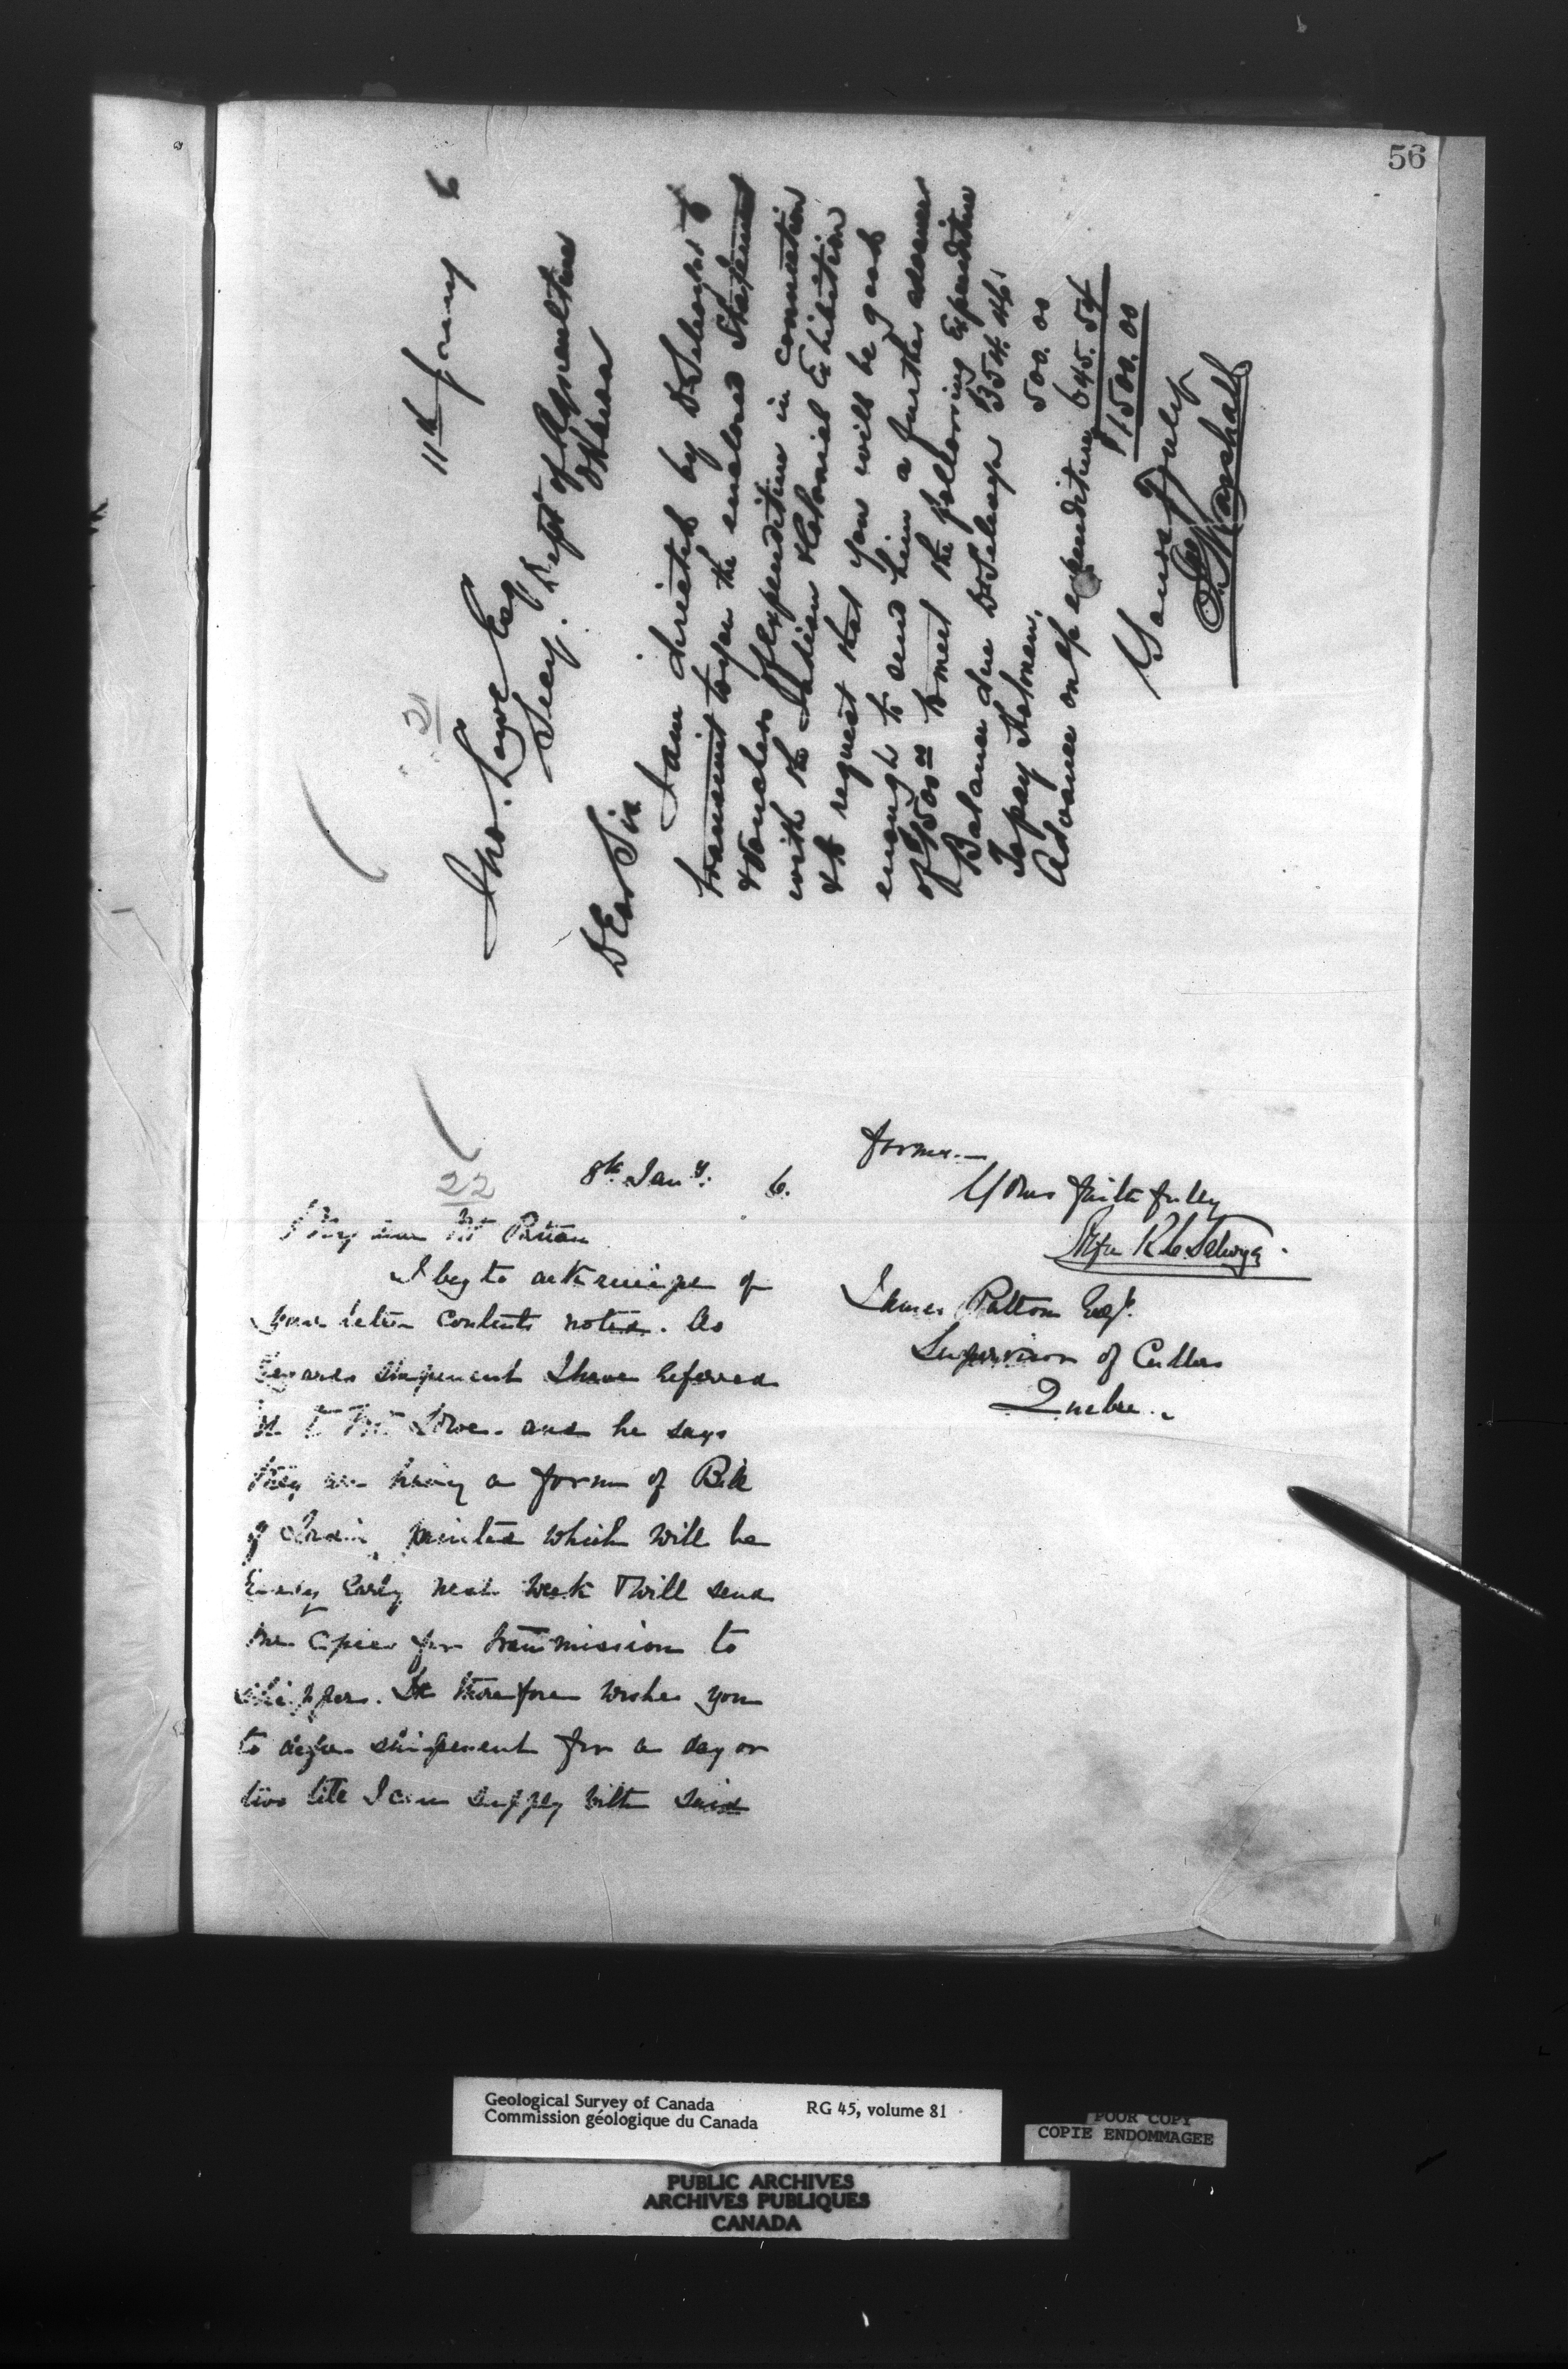 56
11th Jany 6
21
Jno. Lowe Esq
Secy. Dept of Agriculture
Ottawa
Dear Sir
I am directed by Dr Selwyn to
transmit to you the enclosed Statement
& Vouchers of expenditure in connection
with the Indian & Colonial Exhibition
& to request that you will be good
enough to send him a further advance
of $1500.00 to meet the following Expenditure
Balance due Dr Selwyn $354.46
To pay Holman. 500.00
Advance on a/c expenditure 645.54
$1500.00
Yours Truly
Marshall
22
8th Jany. 6.
My dear Mr Patton
I beg to ack receipt of
your letter contents noted. As
regards shipment I have referred
it to Mr Lowe. and he says
they are having a form of Bill
of Lading printed which will be
ready early next week & will send
me copies for transmission to
shippers. He therefore wishes you
to defer shipment for a day or
two till I can supply with said
forms.—
Yours faithfully
Alfred R. C. Selwyn.
James Patton Esqr.
Supervisor of Cullers
Quebec.
Geological Survey of Canada RG 45, volume 81
Commission géologique du Canada
POOR COPY
COPIE ENDOMMAGEE
PUBLIC ARCHIVES
ARCHIVES PUBLIQUES
CANADA